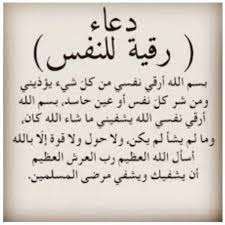 دعاء
( رقية للنفس )
بسم الله أرقي نفسي من كل شيء يؤذيني
ومن شر كل نفس أو عين حاسد، بسم الله
أرقي نفسي الله يشفيني ما شاء الله كان،
وما لم يشأ لم يكن، ولا حول ولا قوة إلا بالله
أسأل الله العظيم رب العرش العظيم
أن يشفيك ويشفي مرضى المسلمين.